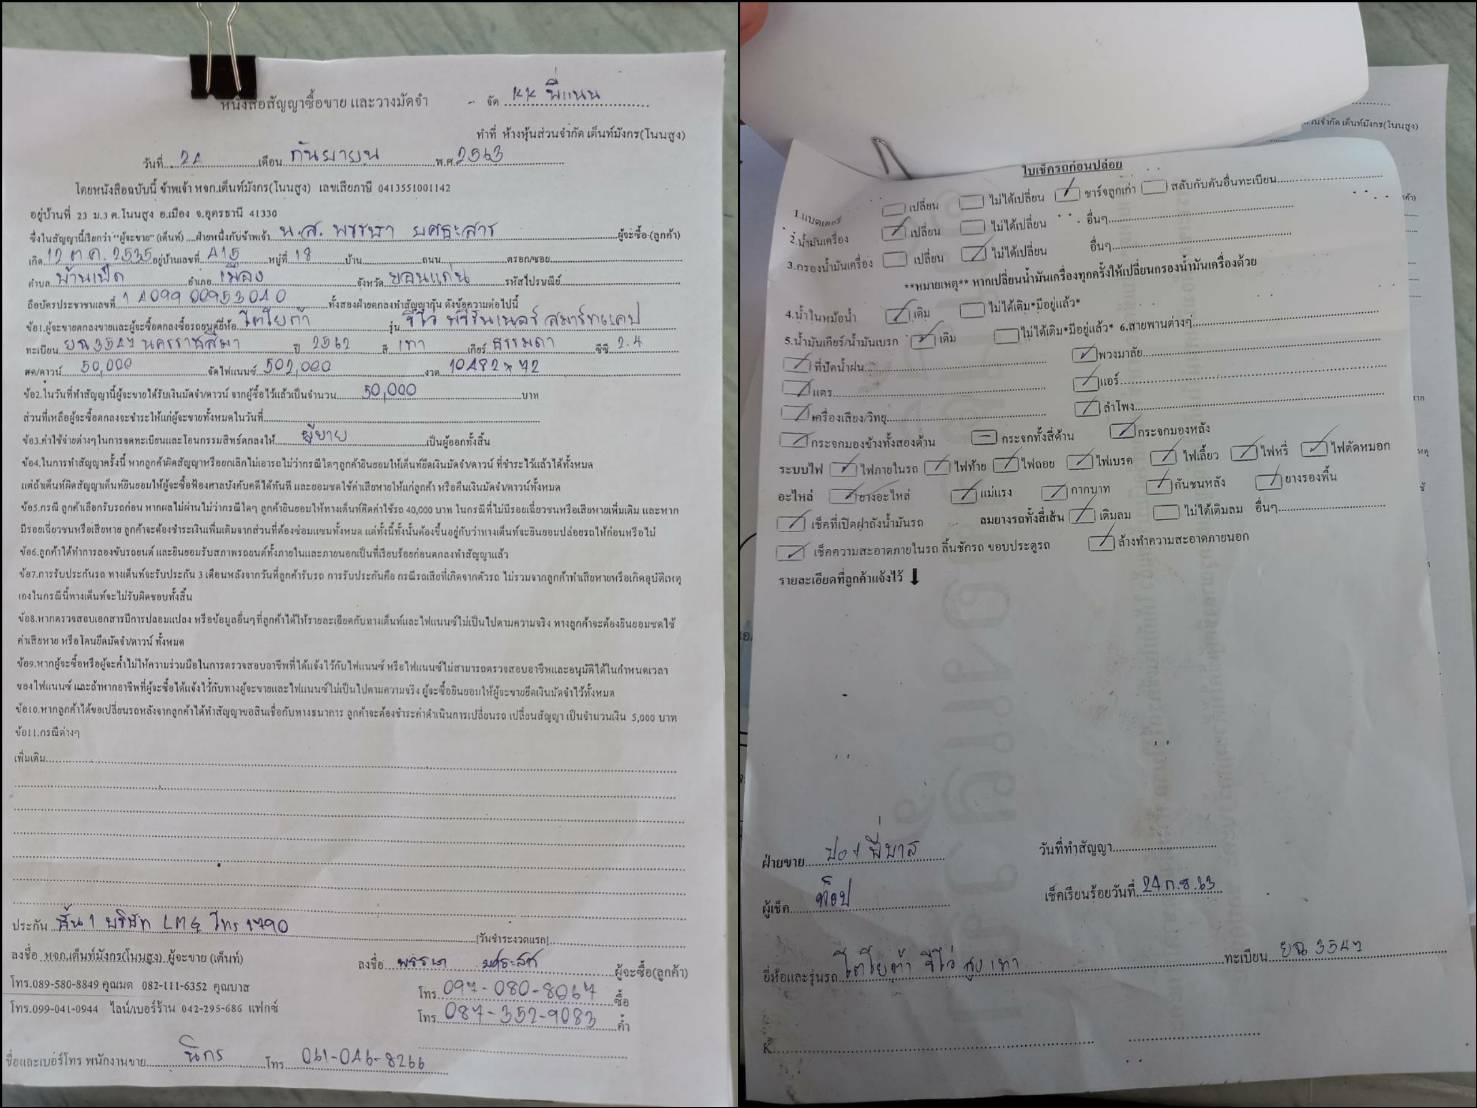 หนังสือสัญญาซื้อขาย และวางมัดจำ - จัด KK พี่แนน
ทำที่ ห้างหุ้นส่วนจำกัด เต็นท์มังกร(โนนสูง)
วันที่ 24 เดือน กันยายน พ.ศ. 2563
โดยหนังสือฉบับนี้ ข้าพเจ้า หจก.เต็นท์มังกร(โนนสูง) เลขเสียภาษี 0413551001142
อยู่บ้านที่ 23 ม.3 ต.โนนสูง อ.เมือง จ.อุดรธานี 41330
ซึ่งในสัญญานี้เรียกว่า "ผู้จะขาย" (เต็นท์) ฝ่ายหนึ่งกับข้าพเจ้า น.ส. พรรษา ยศระสาร ผู้จะซื้อ (ลูกค้า)
เกิด 12 ต.ค. 2535 อยู่บ้านเลขที่ 415 หมู่ที่ 18 บ้าน ถนน ตรอก/ซอย
ตำบล บ้านเป็ด อำเภอ เมือง จังหวัด ขอนแก่น รหัสไปรษณีย์
ถือบัตรประชาชนเลขที่ 1 4099 00953040 ทั้งสองฝ่ายตกลงทำสัญญากัน ดังข้อความต่อไปนี้
ข้อ1.ผู้จะขายตกลงขายและผู้จะซื้อตกลงซื้อรถยนต์ยี่ห้อ โตโยต้า รุ่น รีโว่ พรีรันเนอร์ สมาร์ทแคป
ทะเบียน ยฉ 3547 นครราชสีมา ปี 2562 สี เทา เกียร์ ธรรมดา ซีซี 2.4
สด/ดาวน์ 50,000 จัดไฟแนนซ์ 502,000 งวด 10482 x 72
ข้อ2.ในวันที่ทำสัญญานี้ผู้จะขายได้รับเงินมัดจำ/ดาวน์ จากผู้ซื้อไว้แล้วเป็นจำนวน 50,000 บาท
ส่วนที่เหลือผู้จะซื้อตกลงจะชำระให้แก่ผู้จะขายทั้งหมดในวันที่
ข้อ3.ค่าใช้จ่ายต่างๆในการจดทะเบียนและโอนกรรมสิทธิ์ตกลงให้ ผู้ขาย เป็นผู้ออกทั้งสิ้น
ข้อ4.ในการทำสัญญาครั้งนี้ หากลูกค้าผิดสัญญาหรือยกเลิกไม่เอารถ ไม่ว่ากรณีใดๆลูกค้ายินยอมให้เต็นท์ยึดเงินมัดจำ/ดาวน์ ที่ชำระไว้แล้วได้ทั้งหมด
แต่ถ้าเต็นท์ผิดสัญญาเต็นท์ยินยอมให้ผู้จะซื้อฟ้องศาลบังคับคดีได้ทันที และยอมชดใช้ค่าเสียหายให้แก่ลูกค้า หรือคืนเงินมัดจำ/ดาวน์ทั้งหมด
ข้อ5.กรณี ลูกค้าเลือกรับรถก่อน หากผลไม่ผ่านไม่ว่ากรณีใดๆ ลูกค้ายินยอมให้ทางเต็นท์คิดค่าใช้รถ 40,000 บาท ในกรณีที่ไม่มีรอยเฉี่ยวชนหรือเสียหายเพิ่มเติม และหาก
มีรอยเฉี่ยวชนหรือเสียหาย ลูกค้าจะต้องชำระเงินเพิ่มเติมจากส่วนที่ต้องซ่อมแซมทั้งหมด แต่ทั้งนี้ทั้งนั้นต้องขึ้นอยู่กับว่าทางเต็นท์จะยินยอมปล่อยรถให้ก่อนหรือไม่
ข้อ6.ลูกค้าได้ทำการลองขับรถยนต์ และยินยอมรับสภาพรถยนต์ทั้งภายในและภายนอกเป็นที่เรียบร้อยก่อนตกลงทำสัญญาแล้ว
ข้อ7.การรับประกันรถ ทางเต็นท์จะรับประกัน 3 เดือนหลังจากวันที่ลูกค้ารับรถ การรับประกันคือ กรณีรถเสียที่เกิดจากตัวรถ ไม่รวมจากลูกค้าทำเสียหายหรือเกิดอุบัติเหตุ
เองในกรณีนี้ทางเต็นท์จะไม่รับผิดชอบทั้งสิ้น
ข้อ8.หากตรวจสอบเอกสารมีการปลอมแปลง หรือข้อมูลอื่นๆที่ลูกค้าได้ให้รายละเอียดกับทางเต็นท์และไฟแนนซ์ไม่เป็นไปตามความจริง ทางลูกค้าจะต้องยินยอมชดใช้
ค่าเสียหาย หรือโดนยึดมัดจำ/ดาวน์ ทั้งหมด
ข้อ9.หากผู้จะซื้อหรือผู้จะค้ำไม่ให้ความร่วมมือในการตรวจสอบอาชีพที่ได้แจ้งไว้กับไฟแนนซ์ หรือไฟแนนซ์ไม่สามารถตรวจสอบอาชีพและอนุมัติได้ในกำหนดเวลา
ของไฟแนนซ์ และถ้าหากอาชีพที่ผู้จะซื้อได้แจ้งไว้กับทางผู้จะขายและไฟแนนซ์ไม่เป็นไปตามความจริง ผู้จะซื้อยินยอมให้ผู้จะขายยึดเงินมัดจำไว้ทั้งหมด
ข้อ10.หากลูกค้าได้ขอเปลี่ยนรถหลังจากลูกค้าได้ทำสัญญาขอสินเชื่อกับทางธนาคาร ลูกค้าจะต้องชำระค่าดำเนินการเปลี่ยนรถ เปลี่ยนสัญญา เป็นจำนวนเงิน 5,000 บาท
ข้อ11.กรณีต่างๆ
เพิ่มเติม
ประกัน ชั้น 1 บริษัท LMG โทร 1790 (วันชำระงวดแรก)
ลงชื่อ หจก.เต็นท์มังกร(โนนสูง) ผู้จะขาย (เต็นท์) ลงชื่อ พรรษา ยศระสาร ผู้จะซื้อ(ลูกค้า)
โทร.089-580-8849 คุณมด 082-111-6352 คุณบาส โทร. 097-080-8067 ซื้อ
โทร.099-041-0944 ไลน์/เบอร์ร้าน 042-295-686 แฟกซ์ โทร. 087-352-9083 ค้ำ
ชื่อและเบอร์โทร พนักงานขาย นิกร โทร. 061-046-8266
ใบเช็กรถก่อนปล่อย
1.แบตเตอรี่ เปลี่ยน ไม่ได้เปลี่ยน ชาร์จลูกเก่า สลับกับคันอื่นทะเบียน
2.น้ำมันเครื่อง เปลี่ยน ไม่ได้เปลี่ยน อื่นๆ
3.กรองน้ำมันเครื่อง เปลี่ยน ไม่ได้เปลี่ยน อื่นๆ
**หมายเหตุ** หากเปลี่ยนน้ำมันเครื่องทุกครั้งให้เปลี่ยนกรองน้ำมันเครื่องด้วย
4.น้ำในหม้อน้ำ เติม ไม่ได้เติม*มีอยู่แล้ว*
5.น้ำมันเกียร์/น้ำมันเบรก เติม ไม่ได้เติม*มีอยู่แล้ว* 6.สายพานต่างๆ
ที่ปัดน้ำฝน พวงมาลัย
แตร แอร์
เครื่องเสียง/วิทยุ ลำโพง
กระจกมองข้างทั้งสองด้าน กระจกทั้งสี่ด้าน กระจกมองหลัง
ระบบไฟ ไฟภายในรถ ไฟท้าย ไฟถอย ไฟเบรค ไฟเลี้ยว ไฟหรี่ ไฟตัดหมอก
อะไหล่ ยางอะไหล่ แม่แรง กากบาท กันชนหลัง ยางรองพื้น
เช็คที่เปิดฝาถังน้ำมันรถ ลมยางรถทั้งสี่เส้น เติมลม ไม่ได้เติมลม อื่นๆ
เช็คความสะอาดภายในรถ ลิ้นชักรถ ขอบประตูรถ ล้างทำความสะอาดภายนอก
รายละเอียดที่ลูกค้าแจ้งไว้
ฝ่ายขาย พี่บาส วันที่ทำสัญญา
ผู้เช็ค ท็อป เช็คเรียบร้อยวันที่ 24 ก.ย. 63
ยี่ห้อและรุ่นรถ โตโยต้า รีโว่ สูง เทา ทะเบียน ยฉ 3547